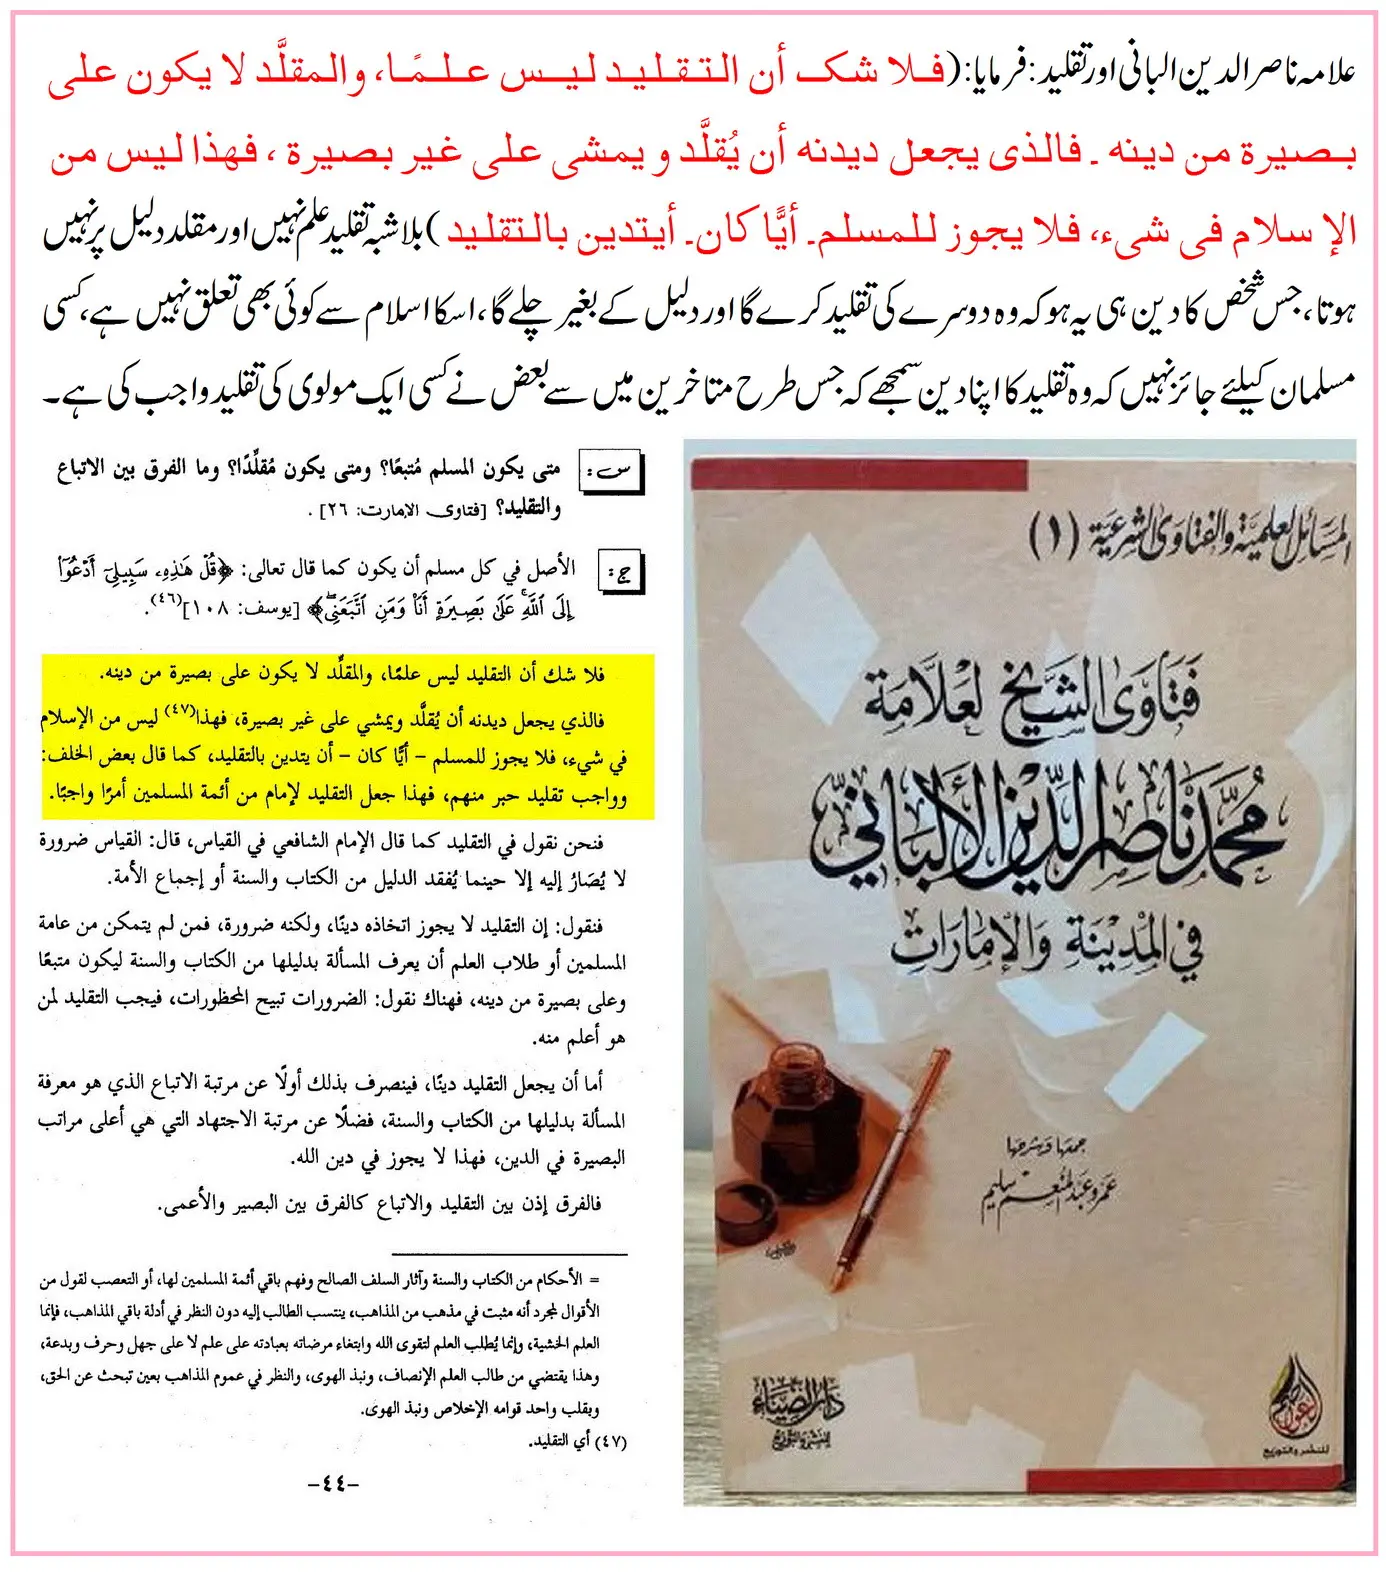 علامہ ناصر الدین البانی اور تقلید: فرمایا: (فلا شک أن التقليد ليس علمًا، والمقلَّد لا يكون على
بصيرة من دينه ـ فالذی يجعل ديدنه أن يُقلَّد و يمشی علی غير بصيرة ، فهذا ليس من
الإ سلام فی شیء، فلا يجوز للمسلمـ أيًّا كانـ أيتدين بالتقليد) بلاشبہ تقلید علم نہیں اور مقلد دلیل پر نہیں
ہوتا، جس شخص کا دین ہی یہ ہو کہ وہ دوسرے کی تقلید کرے گا اور دلیل کے بغیر چلے گا، اسکا اسلام سے کوئی بھی تعلق نہیں ہے، کسی
مسلمان کیلئے جائز نہیں کہ وہ تقلید کا اپنا دین سمجھے کہ جس طرح متاخرین میں سے بعض نے کسی ایک مولوی کی تقلید واجب کی ہے۔
س: متى يكون المسلم مُتبعًا؟ ومتى يكون مُقلِّدًا؟ وما الفرق بين الاتباع
والتقليد؟ [فتاوى الإمارت: ٢٦] .
ج: الأصل في كل مسلم أن يكون كما قال تعالى: ﴿قُلْ هَٰذِهِۦ سَبِيلِىٓ أَدْعُوٓا۟
إِلَى ٱللَّهِ ۚ عَلَىٰ بَصِيرَةٍ أَنَا۠ وَمَنِ ٱتَّبَعَنِى ۖ﴾ [يوسف: ١٠٨](٤٦).
فلا شك أن التقليد ليس علمًا، والمقلِّد لا يكون على بصيرة من دينه.
فالذي يجعل ديدنه أن يُقلَّد ويمشي على غير بصيرة، فهذا(٤٧) ليس من الإسلام
في شيء، فلا يجوز للمسلم – أيًّا كان – أن يتدين بالتقليد، كما قال بعض الخلف:
وواجب تقليد حبر منهم، فهذا جعل التقليد لإمام من أئمة المسلمين أمرًا واجبًا.
فنحن نقول في التقليد كما قال الإمام الشافعي في القياس، قال: القياس ضرورة
لا يُصَارُ إليه إلا حينما يُفقد الدليل من الكتاب والسنة أو إجماع الأمة.
فنقول: إن التقليد لا يجوز اتخاذه دينًا، ولكنه ضرورة، فمن لم يتمكن من عامة
المسلمين أو طلاب العلم أن يعرف المسألة بدليلها من الكتاب والسنة ليكون متبعًا
وعلى بصيرة من دينه، فهناك نقول: الضرورات تبيح المحظورات، فيجب التقليد لمن
هو أعلم منه.
أما أن يجعل التقليد دينًا، فينصرف بذلك أولًا عن مرتبة الاتباع الذي هو معرفة
المسألة بدليلها من الكتاب والسنة، فضلًا عن مرتبة الاجتهاد التي هي أعلى مراتب
البصيرة في الدين، فهذا لا يجوز في دين الله.
فالفرق إذن بين التقليد والاتباع كالفرق بين البصير والأعمى.
= الأحكام من الكتاب والسنة وآثار السلف الصالح وفهم باقي أئمة المسلمين لها، أو التعصب لقول من
الأقوال لمجرد أنه مثبت في مذهب من المذاهب، ينتسب الطالب إليه دون النظر في أدلة باقي المذاهب، فإنما
العلم الخشية، وإنما يُطلب العلم لتقوى الله وابتغاء مرضاته بعبادته على علم لا على جهل وحرف وبدعة،
وهذا يقتضي من طالب العلم الإنصاف، ونبذ الهوى، والنظر في عموم المذاهب بعين تبحث عن الحق،
وبقلب واحد قوامه الإخلاص ونبذ الهوى.
(٤٧) أي التقليد.
–٤٤–
المسائل العلمية والفتاوى الشرعية (١)
فتاوى الشيخ لعلامة
محمد ناصر الدين الألباني
في المدينة والإمارات
جمعها وشرحها
عمرو عبد المنعم سليم
دار الضياء
للنشر والتوزيع
للنشر والتوزيع